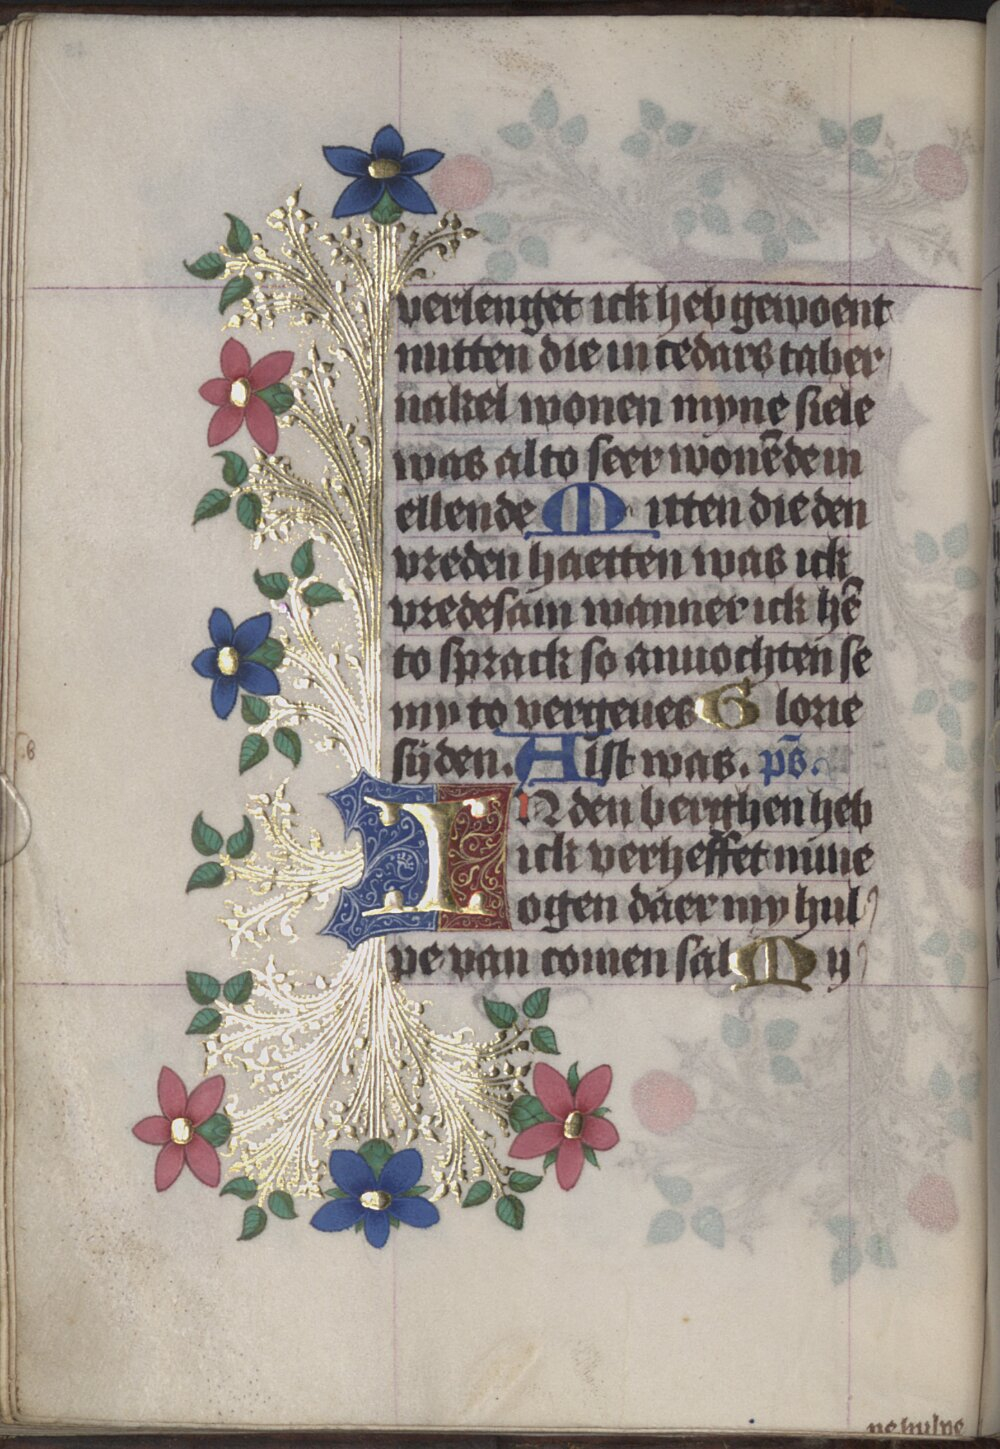 verlenget ick heb gewoent
mitten die in cedars taber
nakel wonen myne siele
was alto seer wonēde in
ellende Mitten die den
vreden haetten was ick
vredesam wanner ick hē
to sprack so anvochten se
my to vergeues Glorie
sijden. Alst was. ps̄.
IN den berghen heb
ick verheffet mine
ogen daer my hul
pe van comen sal My
ne hulpe